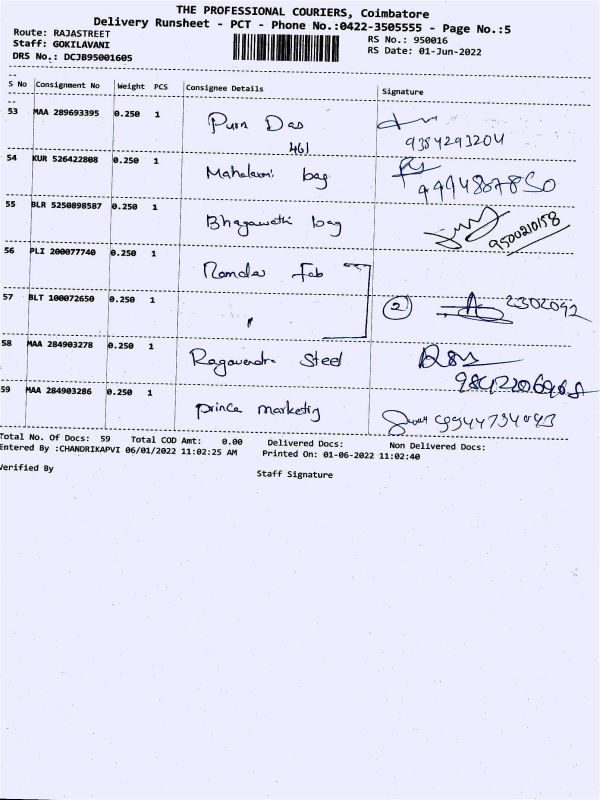 THE PROFESSIONAL COURIERS, Coimbatore
Delivery Runsheet - PCT - Phone No.:0422-3505555 - Page No.:5
Route: RAJASTREET
RS No.: 950016
Staff: GOKILAVANI
RS Date: 01-Jun-2022
DRS No.: DCJB95001605
S No Consignment No Weight PCS Consignee Details Signature
53 MAA 289693395 0.250 1 Purn Das
461 9384293204
54 KUR 526422808 0.250 1 Mahalaxmi bag 9994887850
55 BLR 5250898587 0.250 1 Bhagawathi bag 9500210158
56 PLI 200077740 0.250 1 Ramdev Fab
57 BLT 100072650 0.250 1 2 2302092
58 MAA 284903278 0.250 1 Ragavendra Steel
59 MAA 284903286 0.250 1 prince marketing 9944734043
Total No. Of Docs: 59 Total COD Amt: 0.00 Delivered Docs: Non Delivered Docs:
Entered By :CHANDRIKAPVI 06/01/2022 11:02:25 AM Printed On: 01-06-2022 11:02:40
Verified By Staff Signature